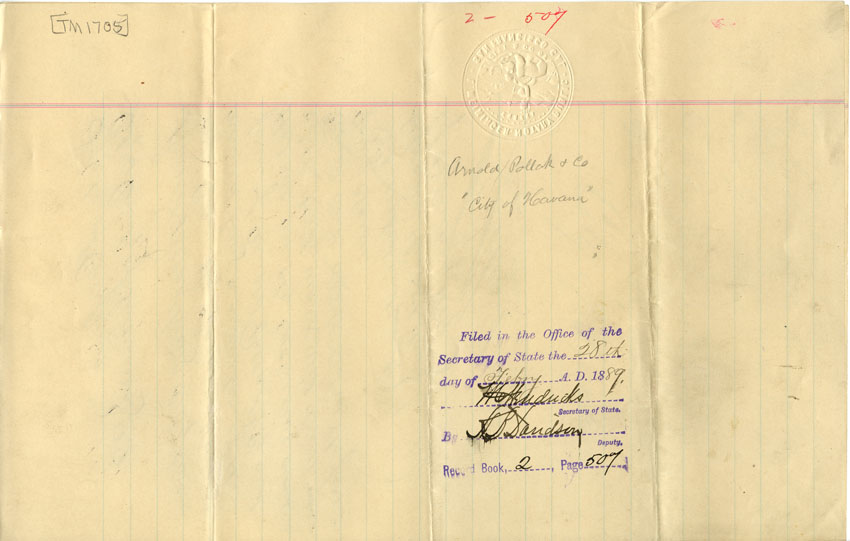 [TM1705]
2 - 507
Arnold Pollak & Co
"City of Havana"
Filed in the Office of the
Secretary of State the 28th
day of Feby A. D. 1889.
Secretary of State.
By
Deputy.
Record Book, 2, Page 507